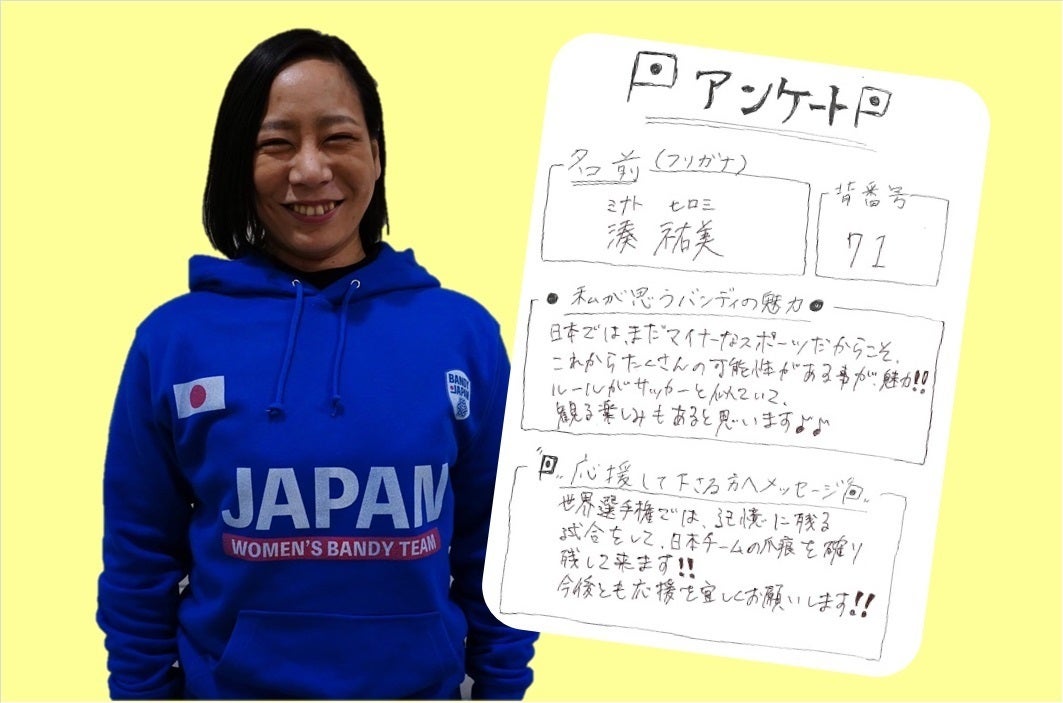 BANDY
JAPAN
JAPAN
WOMEN'S BANDY TEAM
アンケート
名前(フリガナ)
ミナト ヒロミ
湊 祐美
背番号
71
●私が思うバンディの魅力●
日本では、まだマイナーなスポーツだからこそ、
これからたくさんの可能性がある事が、魅力!!
ルールがサッカーと似ていて、
観る楽しみもあると思います♪♪
応援して下さる方へメッセージ
世界選手権では、記憶に残る
試合をして、日本チームの爪痕を確り
残して来ます!!
今後とも応援を宜しくお願いします!!